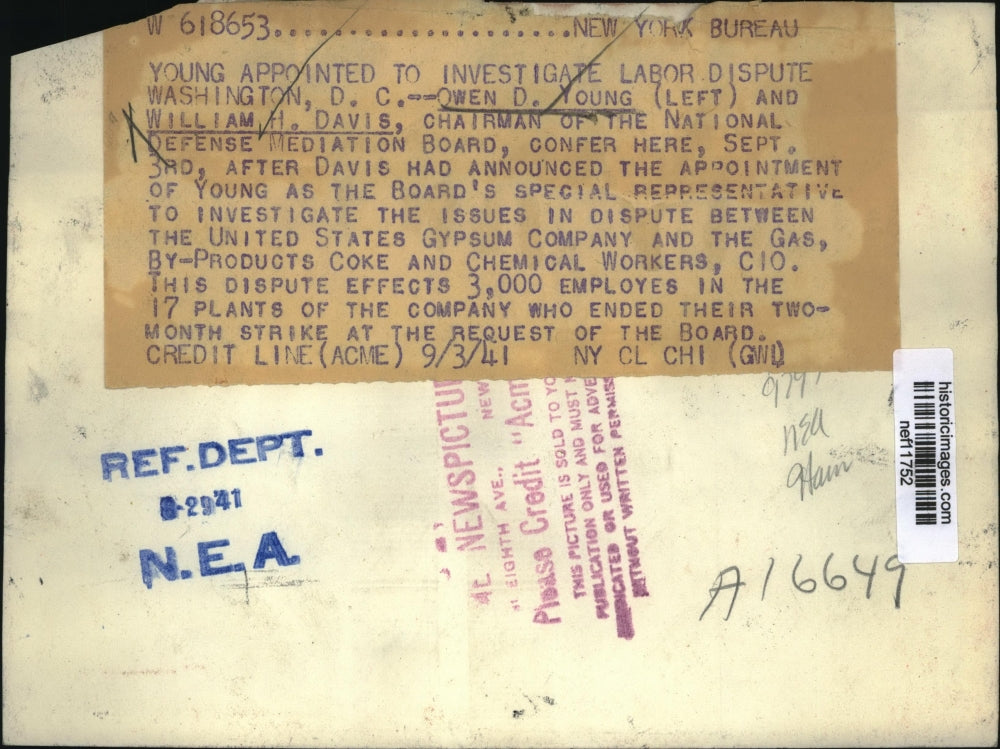 W 618653.....................NEW YORK BUREAU
YOUNG APPOINTED TO INVESTIGATE LABOR DISPUTE
WASHINGTON, D. C.--OWEN D. YOUNG (LEFT) AND
WILLIAM H. DAVIS, CHAIRMAN OF THE NATIONAL
DEFENSE MEDIATION BOARD, CONFER HERE, SEPT.
3RD, AFTER DAVIS HAD ANNOUNCED THE APPOINTMENT
OF YOUNG AS THE BOARD'S SPECIAL REPRESENTATIVE
TO INVESTIGATE THE ISSUES IN DISPUTE BETWEEN
THE UNITED STATES GYPSUM COMPANY AND THE GAS,
BY-PRODUCTS COKE AND CHEMICAL WORKERS, CIO.
THIS DISPUTE EFFECTS 3,000 EMPLOYES IN THE
17 PLANTS OF THE COMPANY WHO ENDED THEIR TWO-
MONTH STRIKE AT THE REQUEST OF THE BOARD.
CREDIT LINE (ACME) 9/3/41 NY CL CHI (GWL)
NEWSPICTU
EIGHTH AVE., NEW
Please Credit "Acm
THIS PICTURE IS SOLD TO YO
PUBLICATION ONLY AND MUST
OR USED FOR ADVE
WITHOUT WRITTEN PERMISS
REF. DEPT.
8-29 41
N.E.A.
NEA
A16649
historicimages.com
nef11752